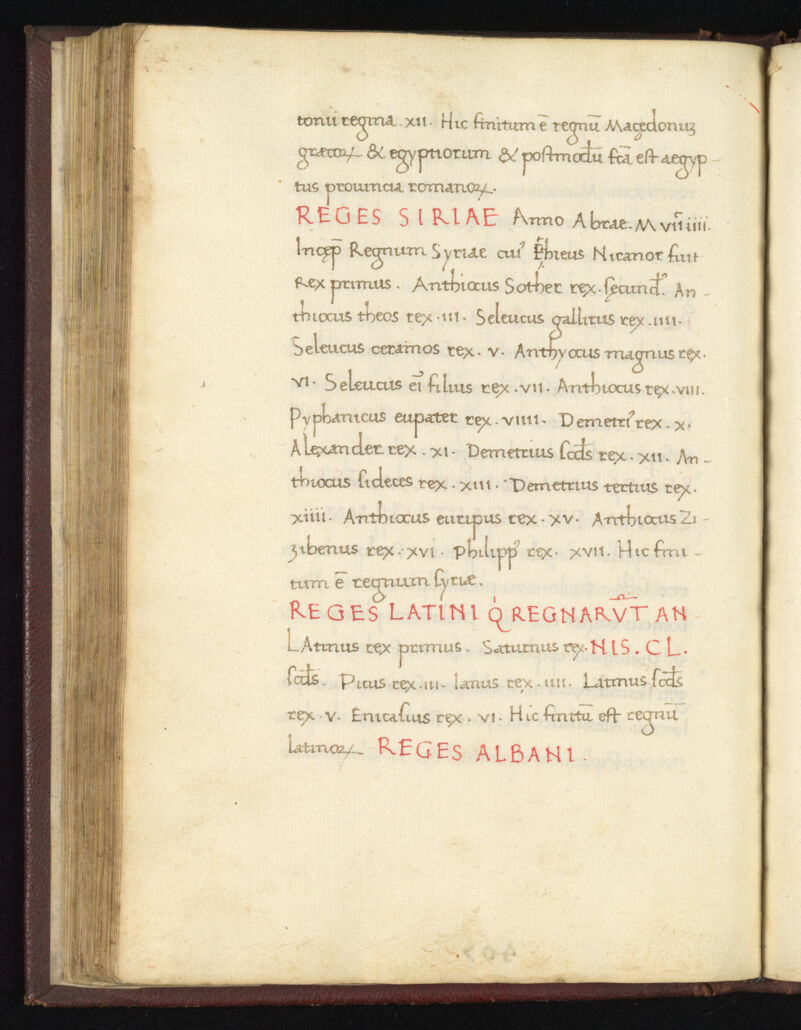 tonii regina. xii. Hic finitum ē regnū Macedonuꝫ
grecoꝝ & egyptiorum & postmodū fcā est aegyp-
tus prouincia romanoꝝ.
REGES SIRIAE Anno Abrae. M vii iiii.
Incep̄ Regnum Syriae cui⁹ Nicanor fuit
Rex primus. Anthiocus Sother rex. secund⁹. An-
thiocus theos rex. iii. Seleucus gallirus rex. iiii.
Seleucus ceramos rex. v. Anthyocus magnus rex.
vi. Seleucus ei⁹ filius rex. vii. Anthiocus rex. viii.
Pyphanicus eupater rex. viiii. Demetri⁹ rex. x.
Alexander rex. xi. Demetrius scds rex. xii. An-
thiocus sideces rex. xiii. Demetrius tertius rex.
xiiii. Anthiocus euripus rex. xv. Anthiocus Zi-
ʒibenus rex. xvi. Philipp⁹ rex. xvii. Hic fini-
tum ē regnum syriæ.
REGES LATINI Q REGNARVT AN-
LAtinus rex primus. Saturnus rex. NIS. CL.
scds. Picus rex. iii. Ianus rex. iiii. Latinus scds
rex. v. Enicasius rex. vi. Hic finitū est regnū
latinoꝝ REGES ALBANI.